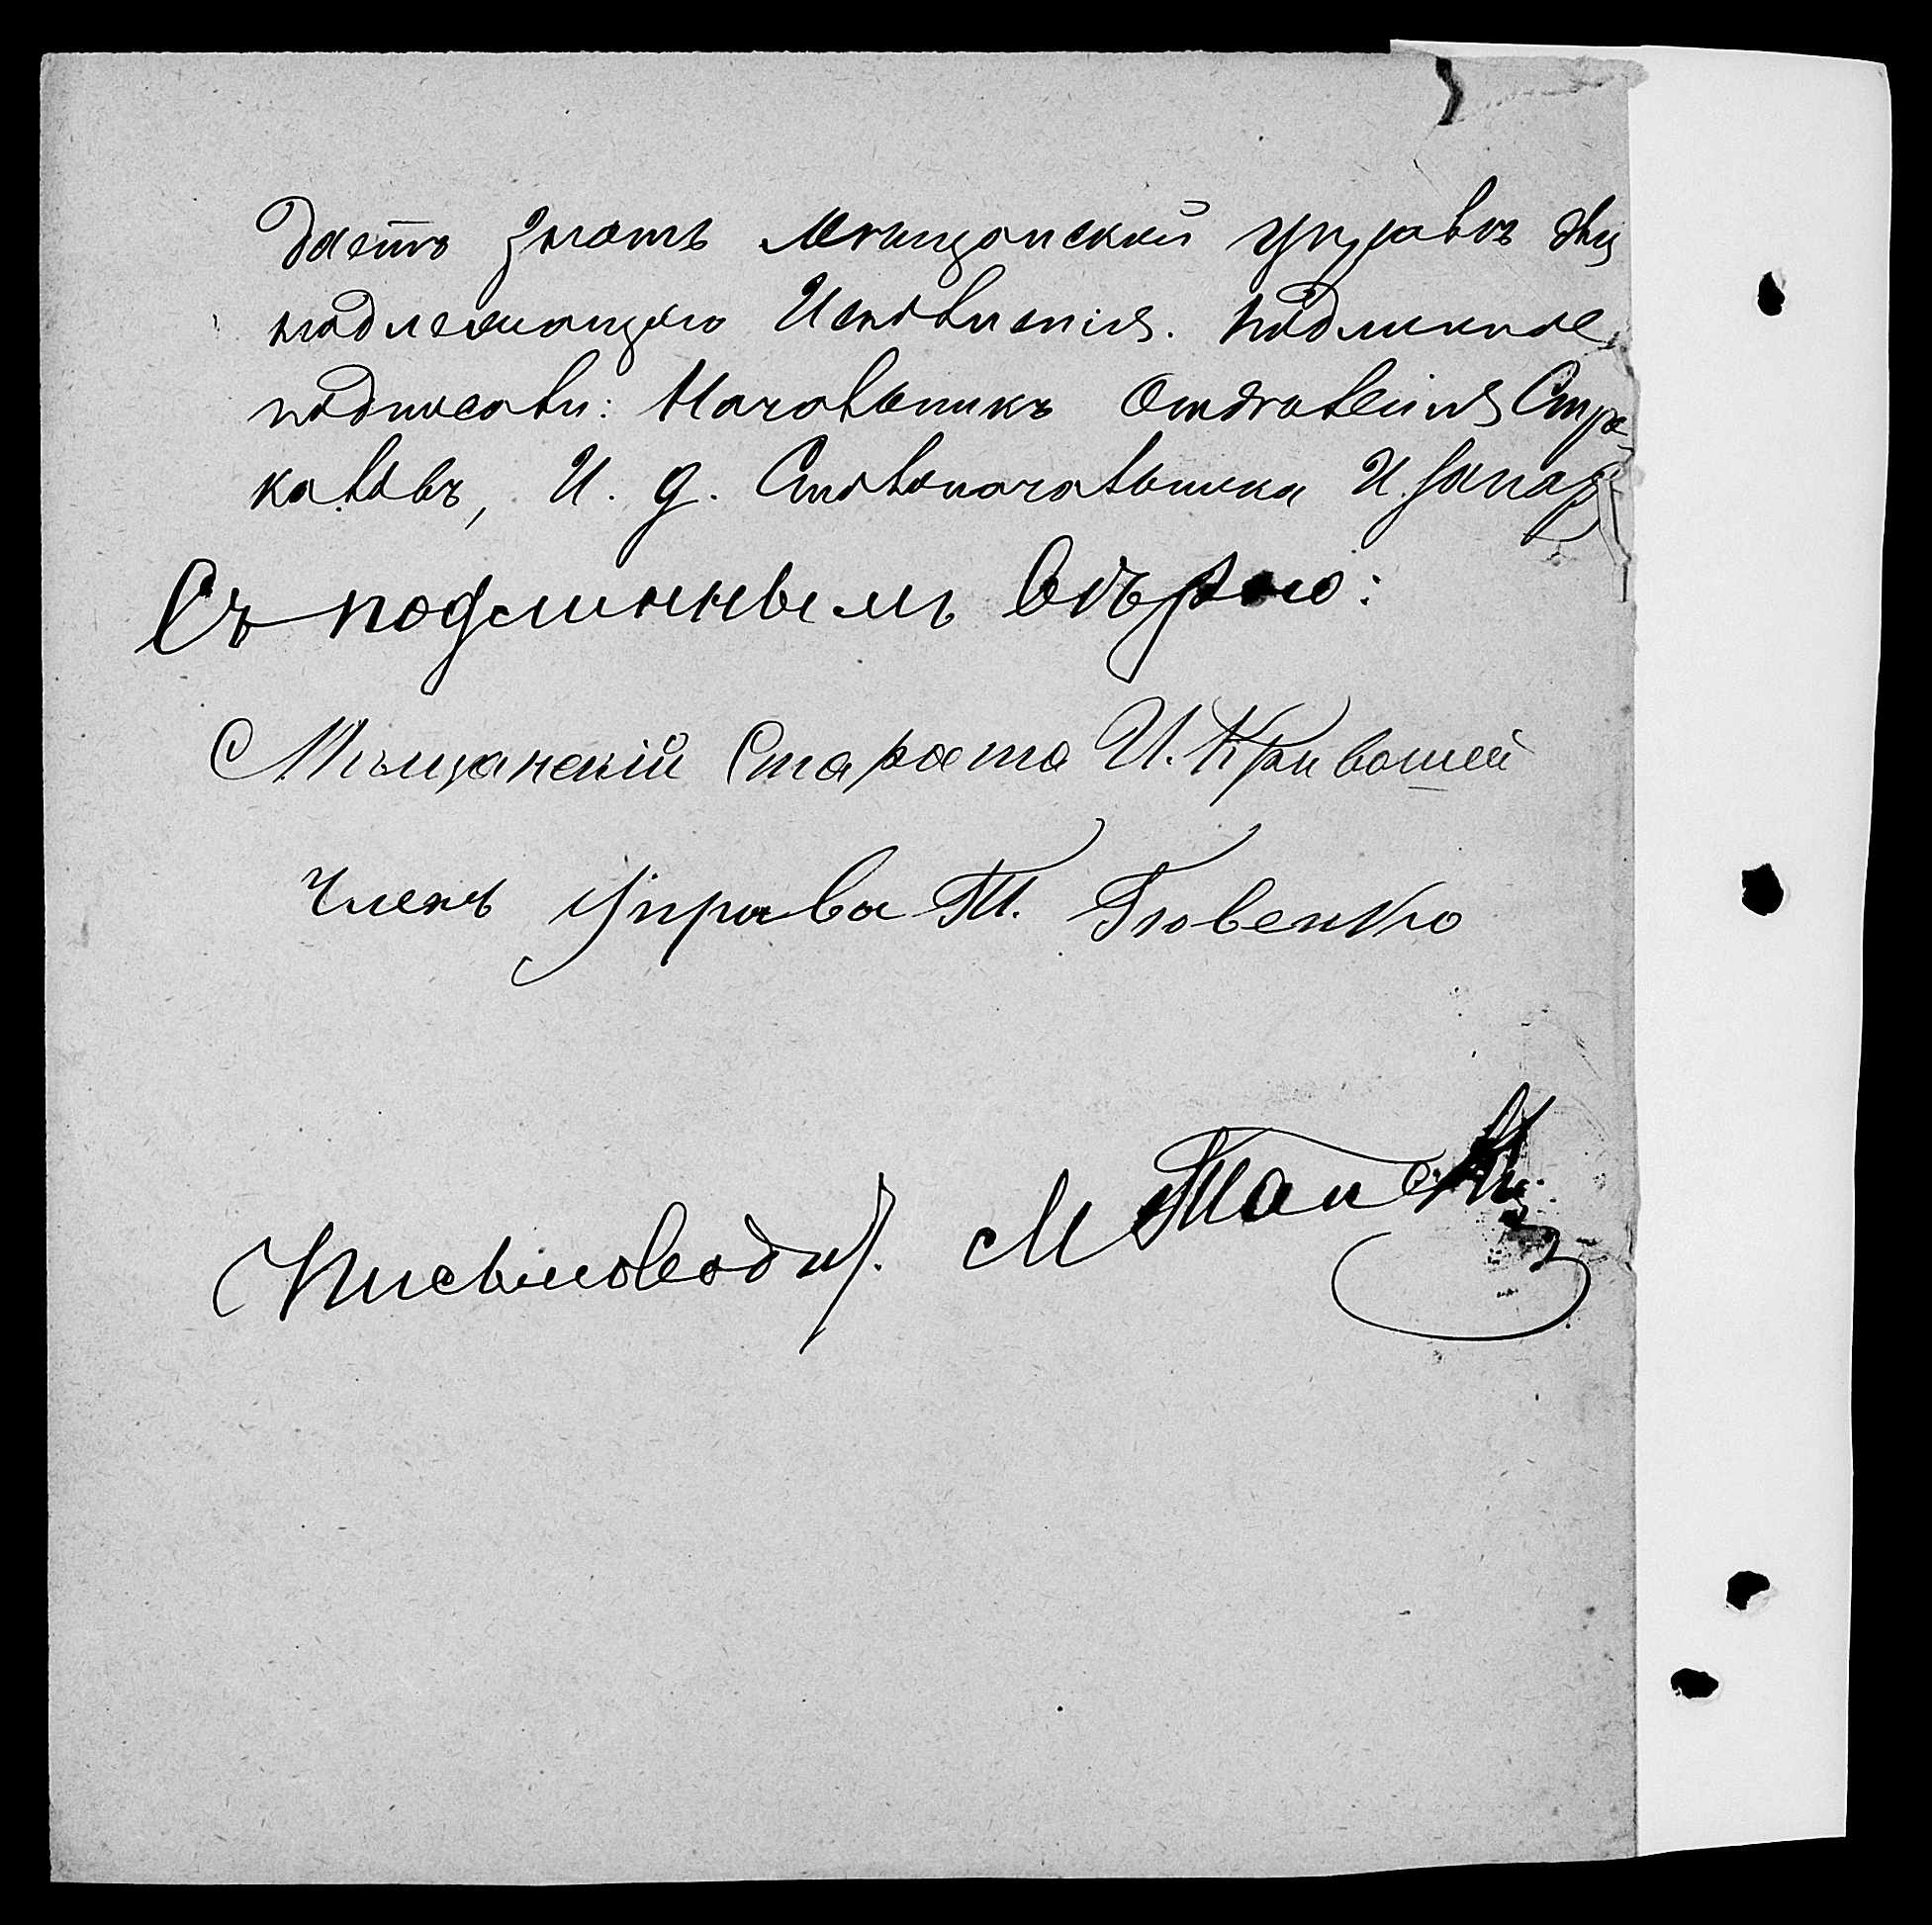 даетъ знать Мѣщанской управѣ для
надлежащаго Исполненія. Подлинное
подписали: Начальникъ Отдѣленія Стра-
каловъ, И. д. Столоначальника И.
Съ подлиннымъ вѣрно:
Мѣщанскій Староста И. Кривошей
Членъ Управы Т. Бовенко
Письмовод. М